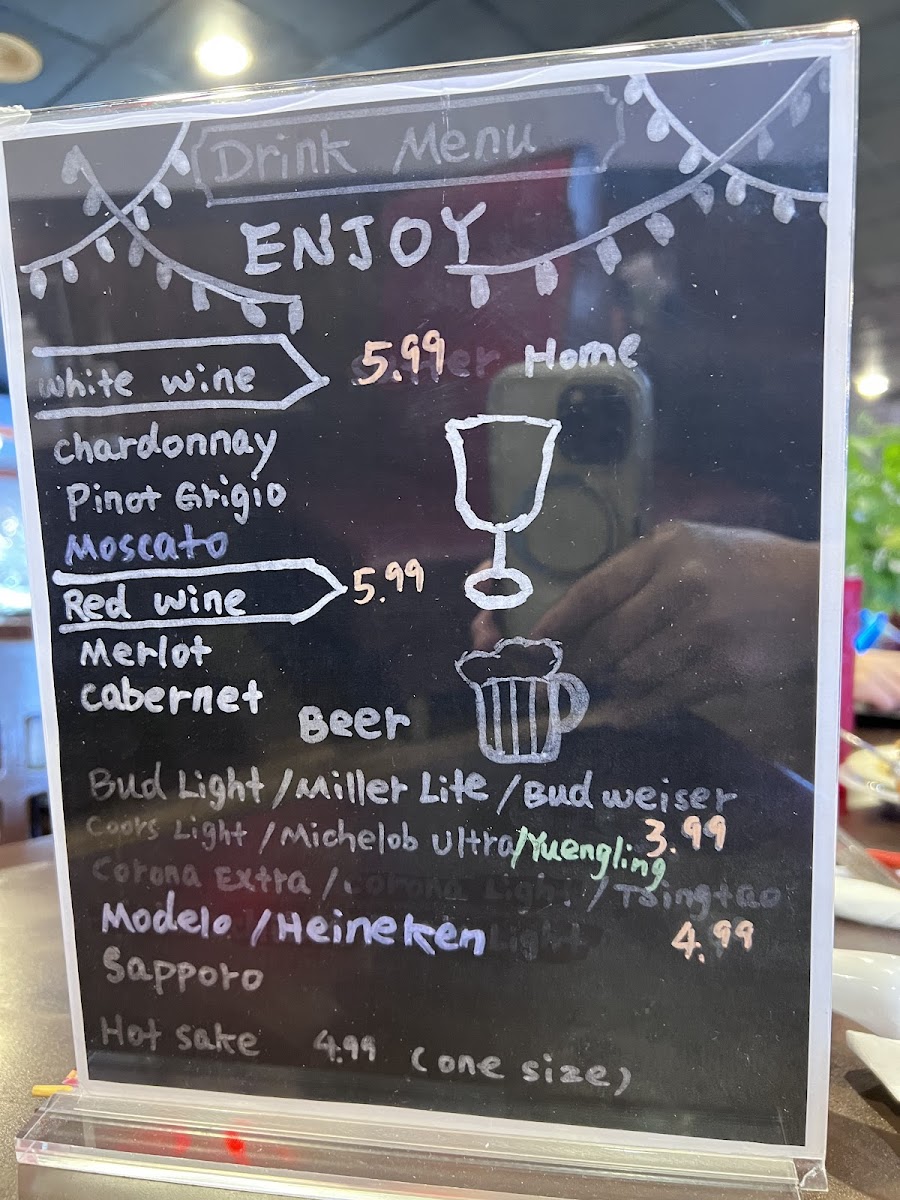 Drink Menu
ENJOY
white wine 5.99 Home
chardonnay
Pinot Grigio
Moscato
Red wine 5.99
Merlot
cabernet
Beer
Bud Light / Miller Lite / Bud weiser
Coors Light / Michelob Ultra / Yuengling 3.99
Corona Extra / Corona Light / Tsingtao
Modelo / Heineken Light 4.99
Sapporo
Hot sake 4.99 (one size)